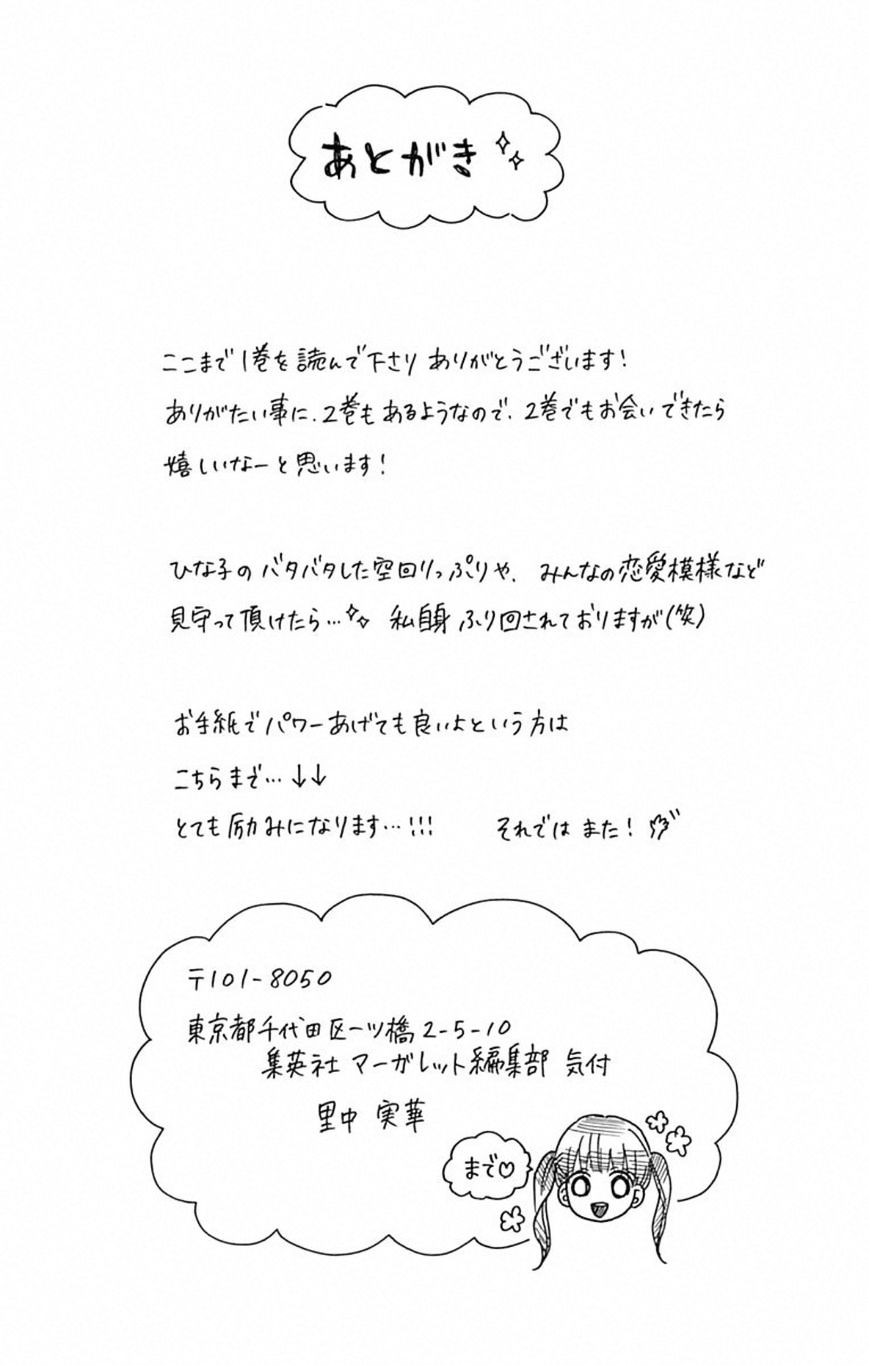 あとがき
ここまで1巻を読んで下さりありがとうございます!
ありがたい事に、2巻もあるようなので、2巻でもお会いできたら
嬉しいなーと思います!
ひな子のバタバタした空回りっぷりや、みんなの恋愛模様など
見守って頂けたら… 私自身ふり回されておりますが(笑)
お手紙でパワーあげても良いよという方は
こちらまで…↓↓
とても励みになります…!!! それではまた!
〒101-8050
東京都千代田区一ツ橋2-5-10
集英社 マーガレット編集部 気付
里中 実華
まで♡